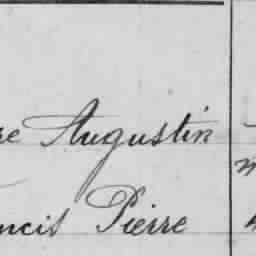 re Augustin
ncis Pierre